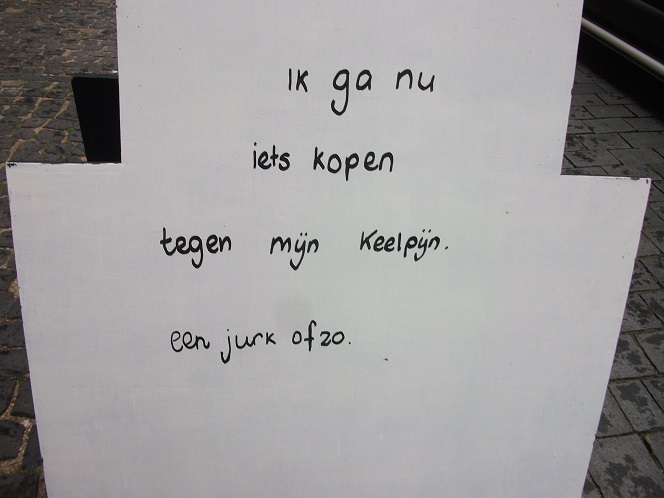 Ik ga nu
iets kopen
tegen mijn keelpijn.
een jurk ofzo.